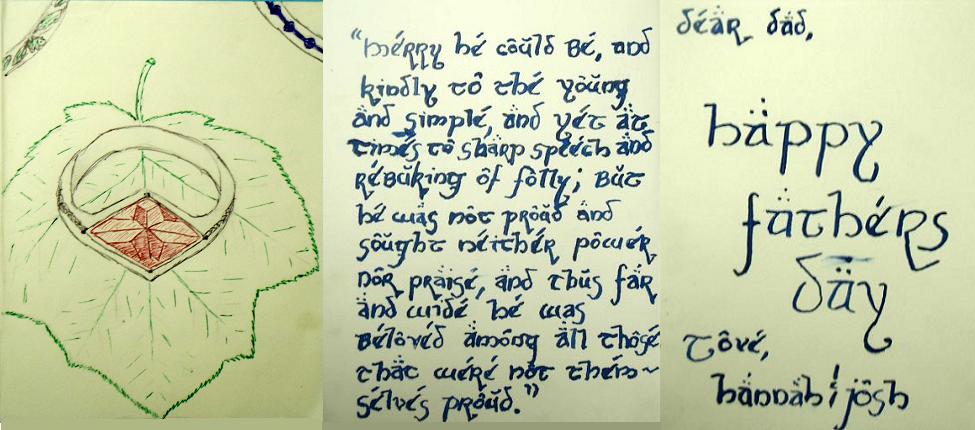 "merry he could be, and
kindly to the young
and simple, and yet at
times to sharp speech and
rebuking of folly; but
he was not proud and
sought neither power
nor praise, and thus far
and wide he was
beloved among all those
that were not them~
selves proud."
dear dad,
happy
fathers
day
Love,
hannah & josh